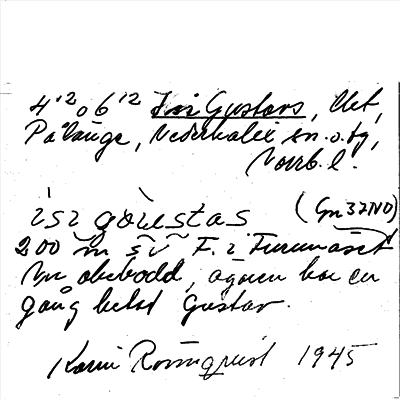 4'²o 6'² Isi Gustavs, Üet,
Pålänge, Nederkalix sn. o. tg,
Norrb. l.
isi gɷustas (Gn 32NO)
200 m SV F. i Furunäset
Nu obebodd, ägaren har en
gång hetat Gustav.
Karin Rönnquist 1945